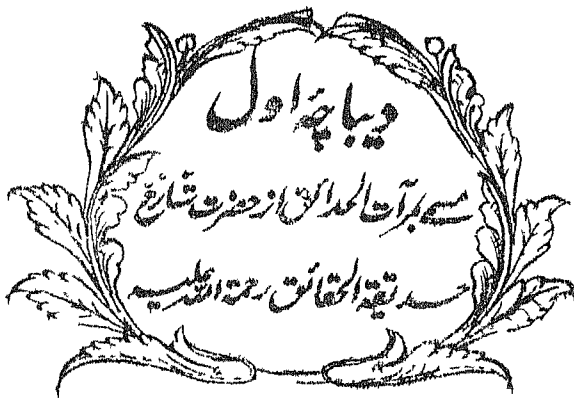 دیباچۂ اول
مسمے بمرآت الحدائق از حضرت شارح
حدیقة الحقائق رحمة الله علیہ